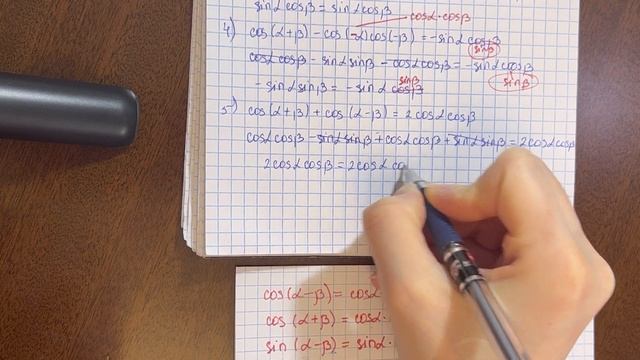 sinα cosβ = sinα cosβ
cosα·cosβ
4) cos(α+β) - cos(-α)cos(-β) = -sinα cosβ
sinβ
cosα cosβ - sinα sinβ - cosα cosβ = -sinα cosβ
sinβ
- sinα sinβ = - sinα cosβ
sinβ
5) cos(α+β) + cos(α-β) = 2cosα cosβ
cosα cosβ - sinα sinβ + cosα cosβ + sinα sinβ = 2cosα cosβ
2cosα cosβ = 2cosα co
cos(α-β) = cosα
cos(α+β) = cosα·
sin(α-β) = sinα·